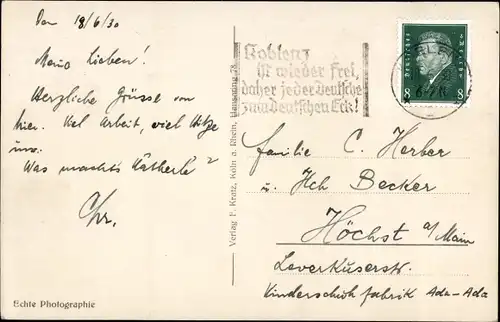 Den 18/6/30
Meine Lieben!
Herzliche Grüsse von
hier. Viel Arbeit, viel Hitze
usw.
Was macht's Kätherle?
Chr.
Echte Photographie
Verlag F. Kratz, Köln a. Rhein, 78
Koblenz
ist wieder frei,
daher jeder Deutsche
zum Deutschen Eck!
Deutsches Reich
8 8
Familie C. Herber
u. Hch Becker
Höchst a/Main
Leverkuserstr.
Kinderschuhfabrik Ada-Ada